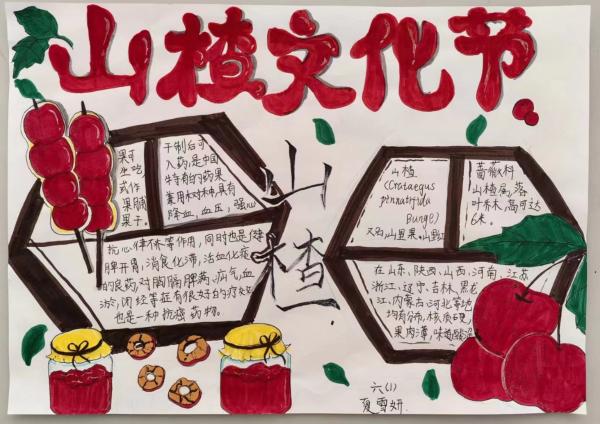 山楂文化节
果可
生吃
或作
果脯
果子。
干制后可
入药,是中国
特有的药果
兼用树种,具有
降血,血压,强心
抗心律不齐等作用,同时也是健
脾开胃,消食化滞,活血化痰
的良药,对胸膈脾满、疝气,血
淤,闭经等症有很好的疗效
也是一种抗癌药物。
山楂
山楂
(Crataegus
pinnatifida
Bunge)
又名,山里果,山里红
蔷薇科
山楂属,落
叶乔木,高可达
6米。
在山东、陕西、山西、河南、江苏
浙江、辽宁、吉林、黑龙
江、内蒙古、河北等地
均有分布,核质硬
果肉薄,味
六(1)
夏雪妍.